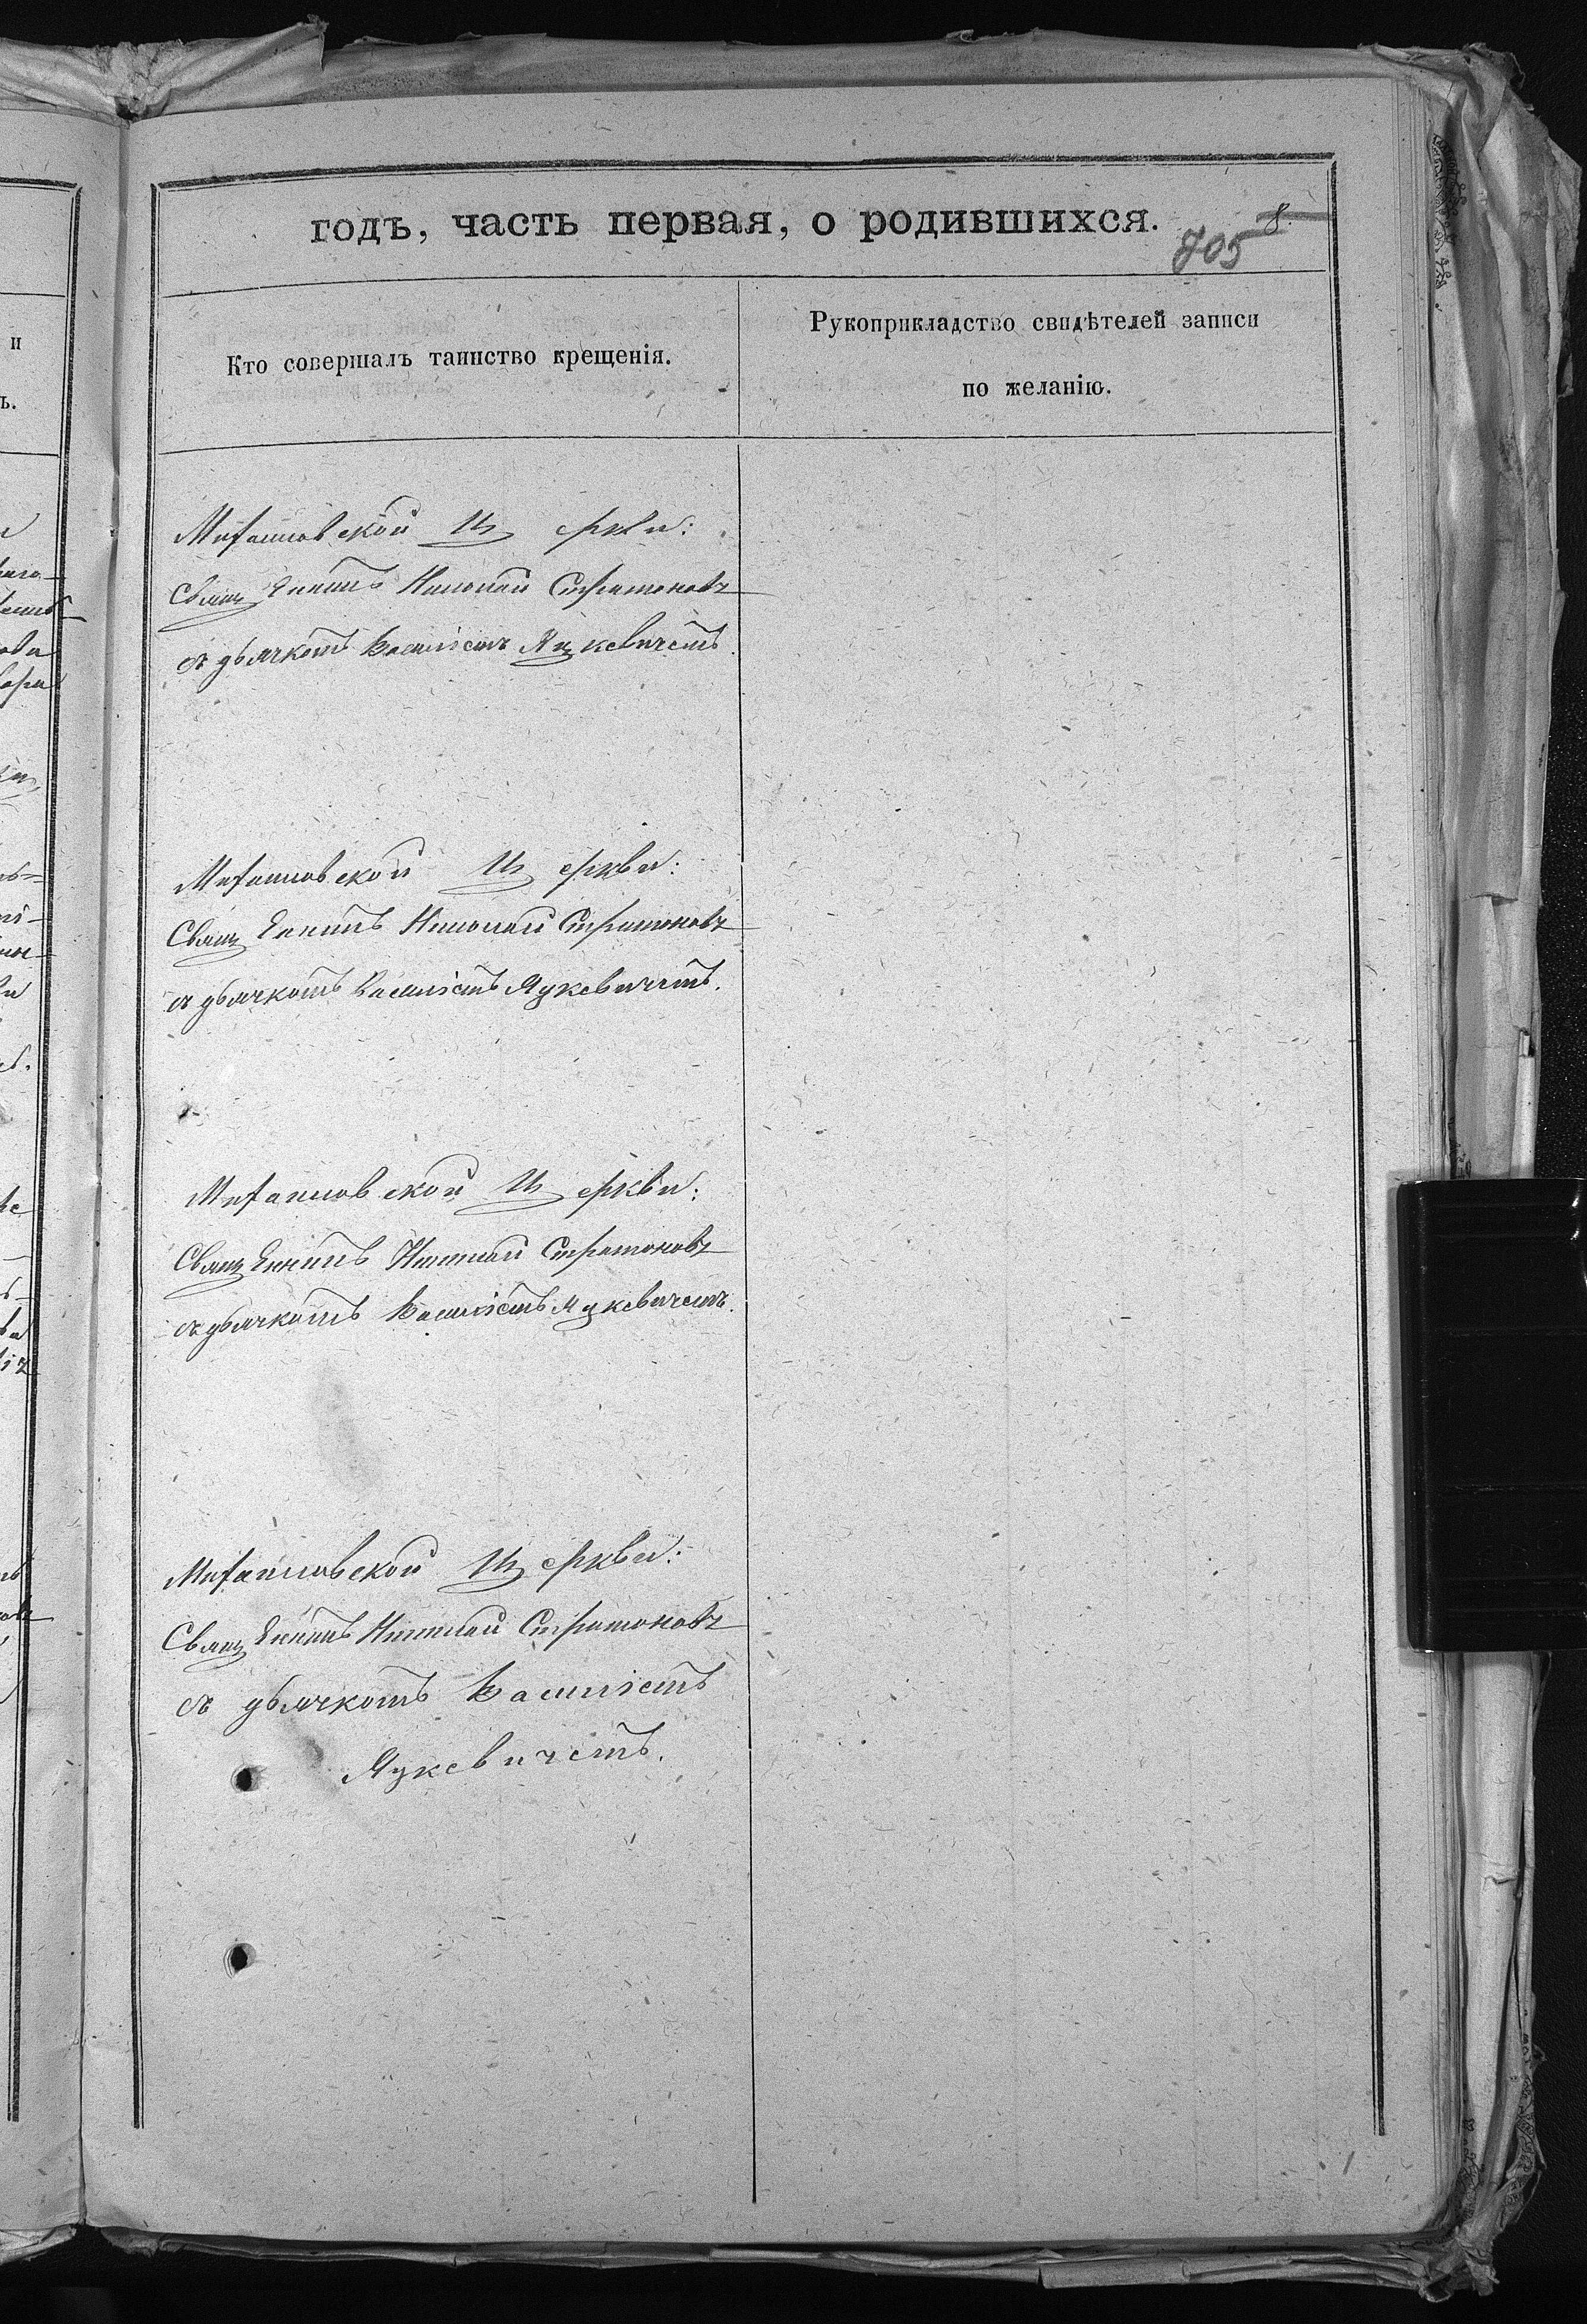 годъ, часть первая, о родившихся.
8.
705
Кто совершалъ таинство крещенія.
Рукоприкладство свидѣтелей записи
по желанію.
Михаиловской Церкви:
Священникъ Николай Стратоновъ
съ дьячкомъ Василіемъ Яцкевичемъ.
Михаиловской Церкви:
Священникъ Николай Стратоновъ
съ дьячкомъ Василіемъ Яцкевичемъ.
Михаиловской Церкви:
Священникъ Николай Стратоновъ
съ дьячкомъ Василіемъ Яцкевичемъ.
Михаиловской Церкви:
Священникъ Николай Стратоновъ
съ дьячкомъ Василіемъ
Яцкевичемъ.